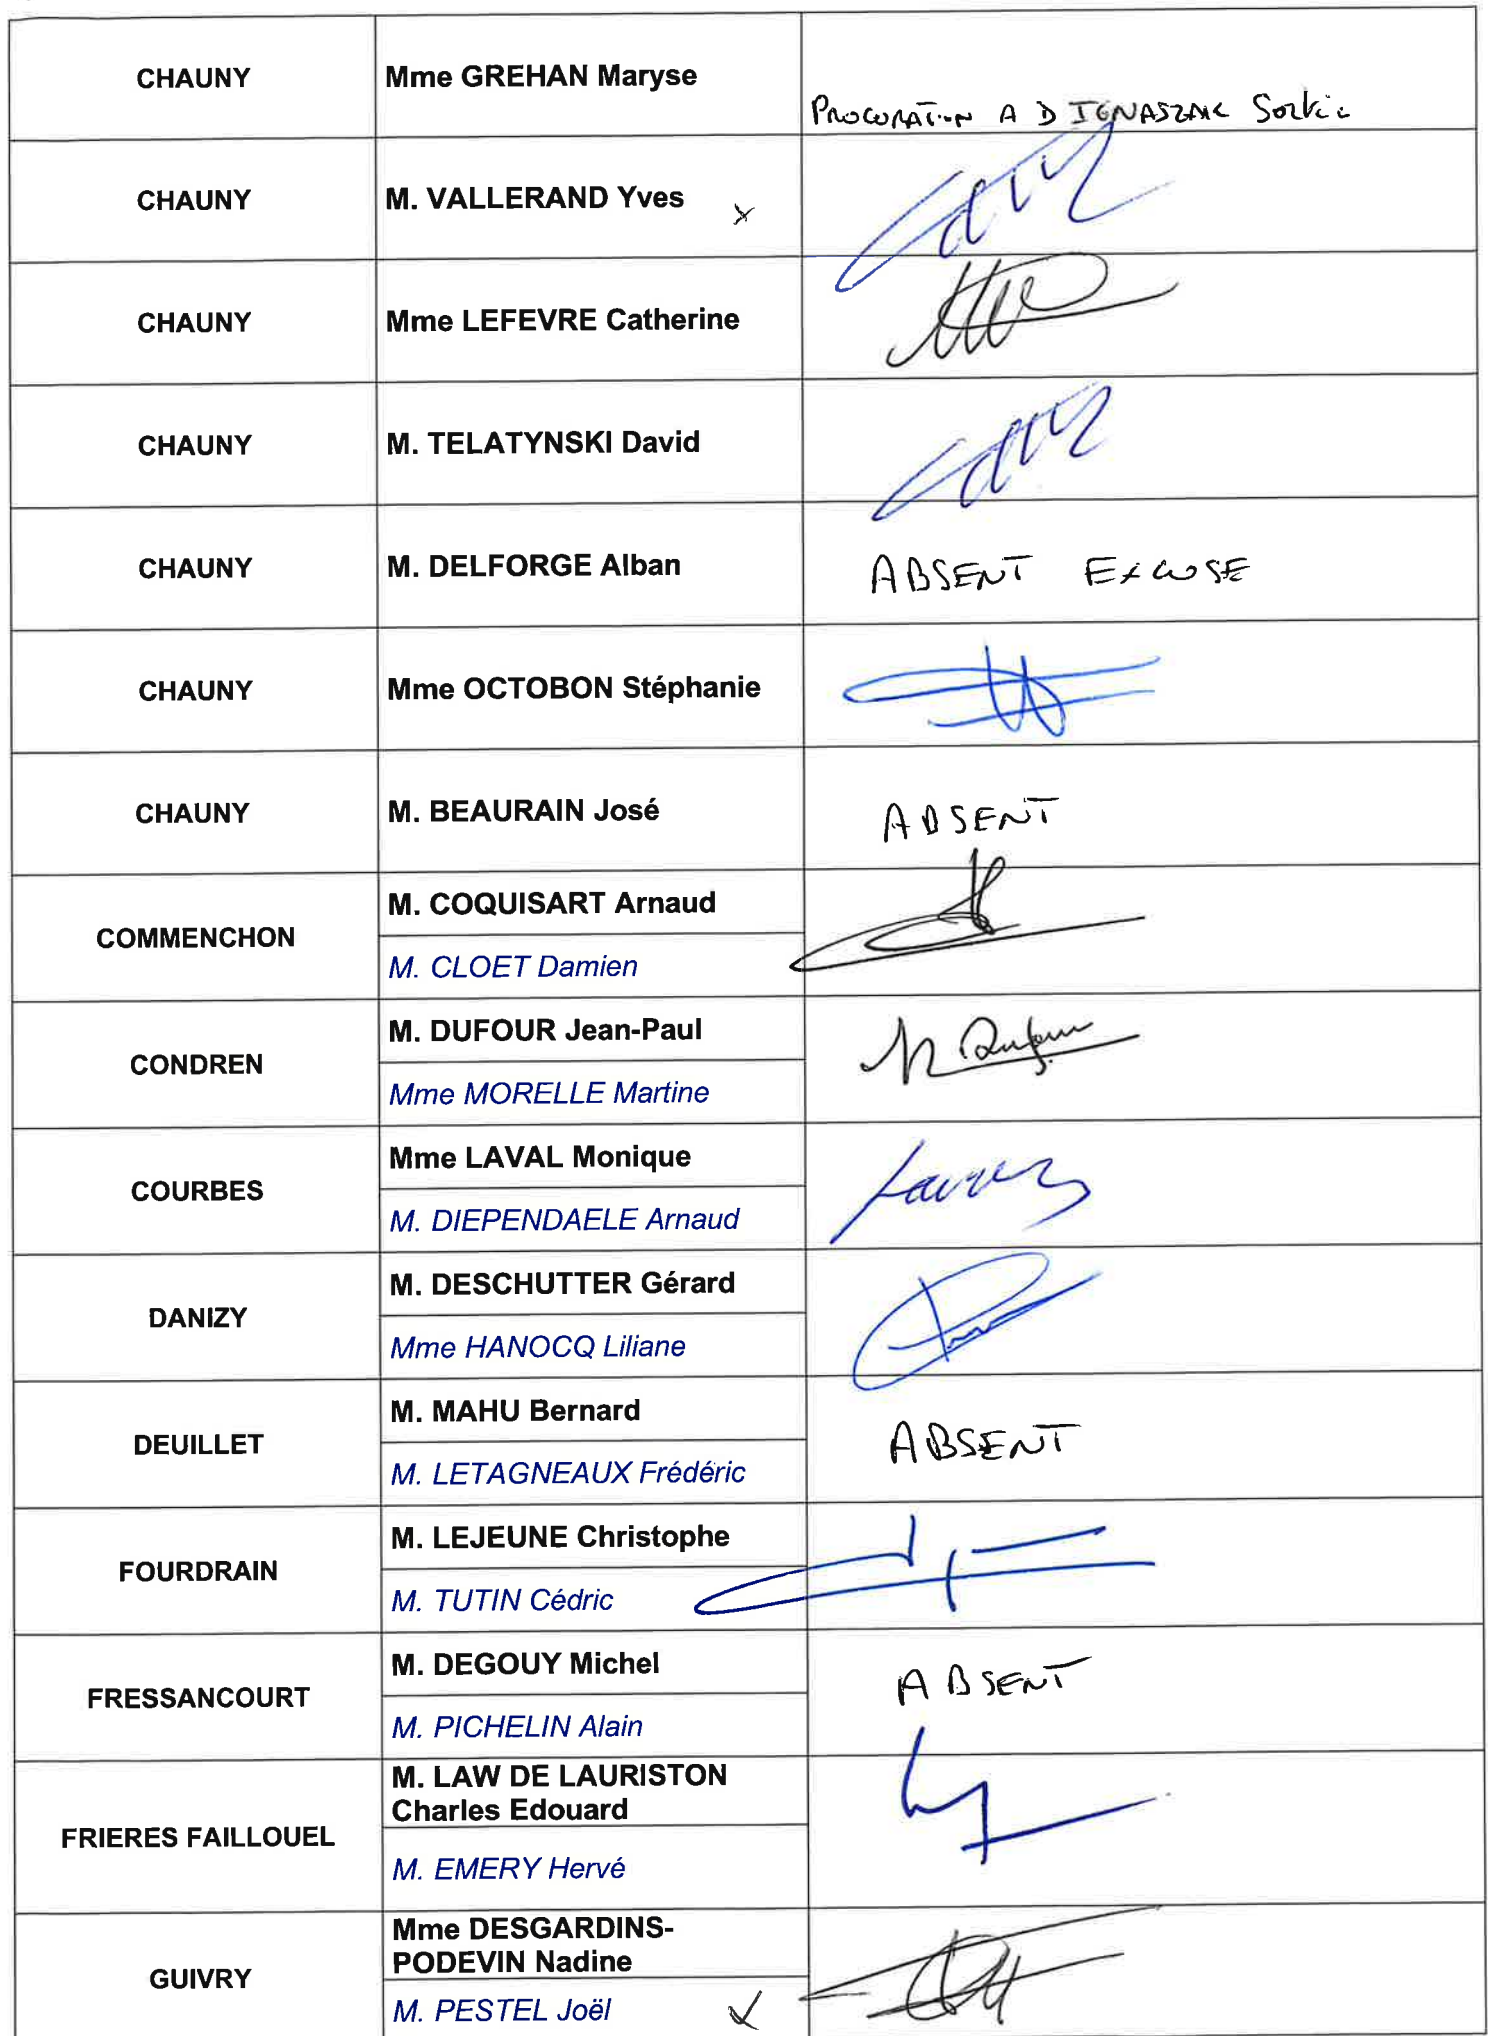 CHAUNY
Mme GREHAN Maryse
PROCURATION A D IGNASZAK
CHAUNY
M. VALLERAND Yves x
CHAUNY
Mme LEFEVRE Catherine
CHAUNY
M. TELATYNSKI David
CHAUNY
M. DELFORGE Alban
ABSENT EXCUSE
CHAUNY
Mme OCTOBON Stéphanie
CHAUNY
M. BEAURAIN José
ABSENT
COMMENCHON
M. COQUISART Arnaud
M. CLOET Damien
CONDREN
M. DUFOUR Jean-Paul
Dufour
Mme MORELLE Martine
COURBES
Mme LAVAL Monique
M. DIEPENDAELE Arnaud
DANIZY
M. DESCHUTTER Gérard
Mme HANOCQ Liliane
DEUILLET
M. MAHU Bernard
ABSENT
M. LETAGNEAUX Frédéric
FOURDRAIN
M. LEJEUNE Christophe
M. TUTIN Cédric
FRESSANCOURT
M. DEGOUY Michel
ABSENT
M. PICHELIN Alain
FRIERES FAILLOUEL
M. LAW DE LAURISTON
Charles Edouard
M. EMERY Hervé
GUIVRY
Mme DESGARDINS-
PODEVIN Nadine
M. PESTEL Joël